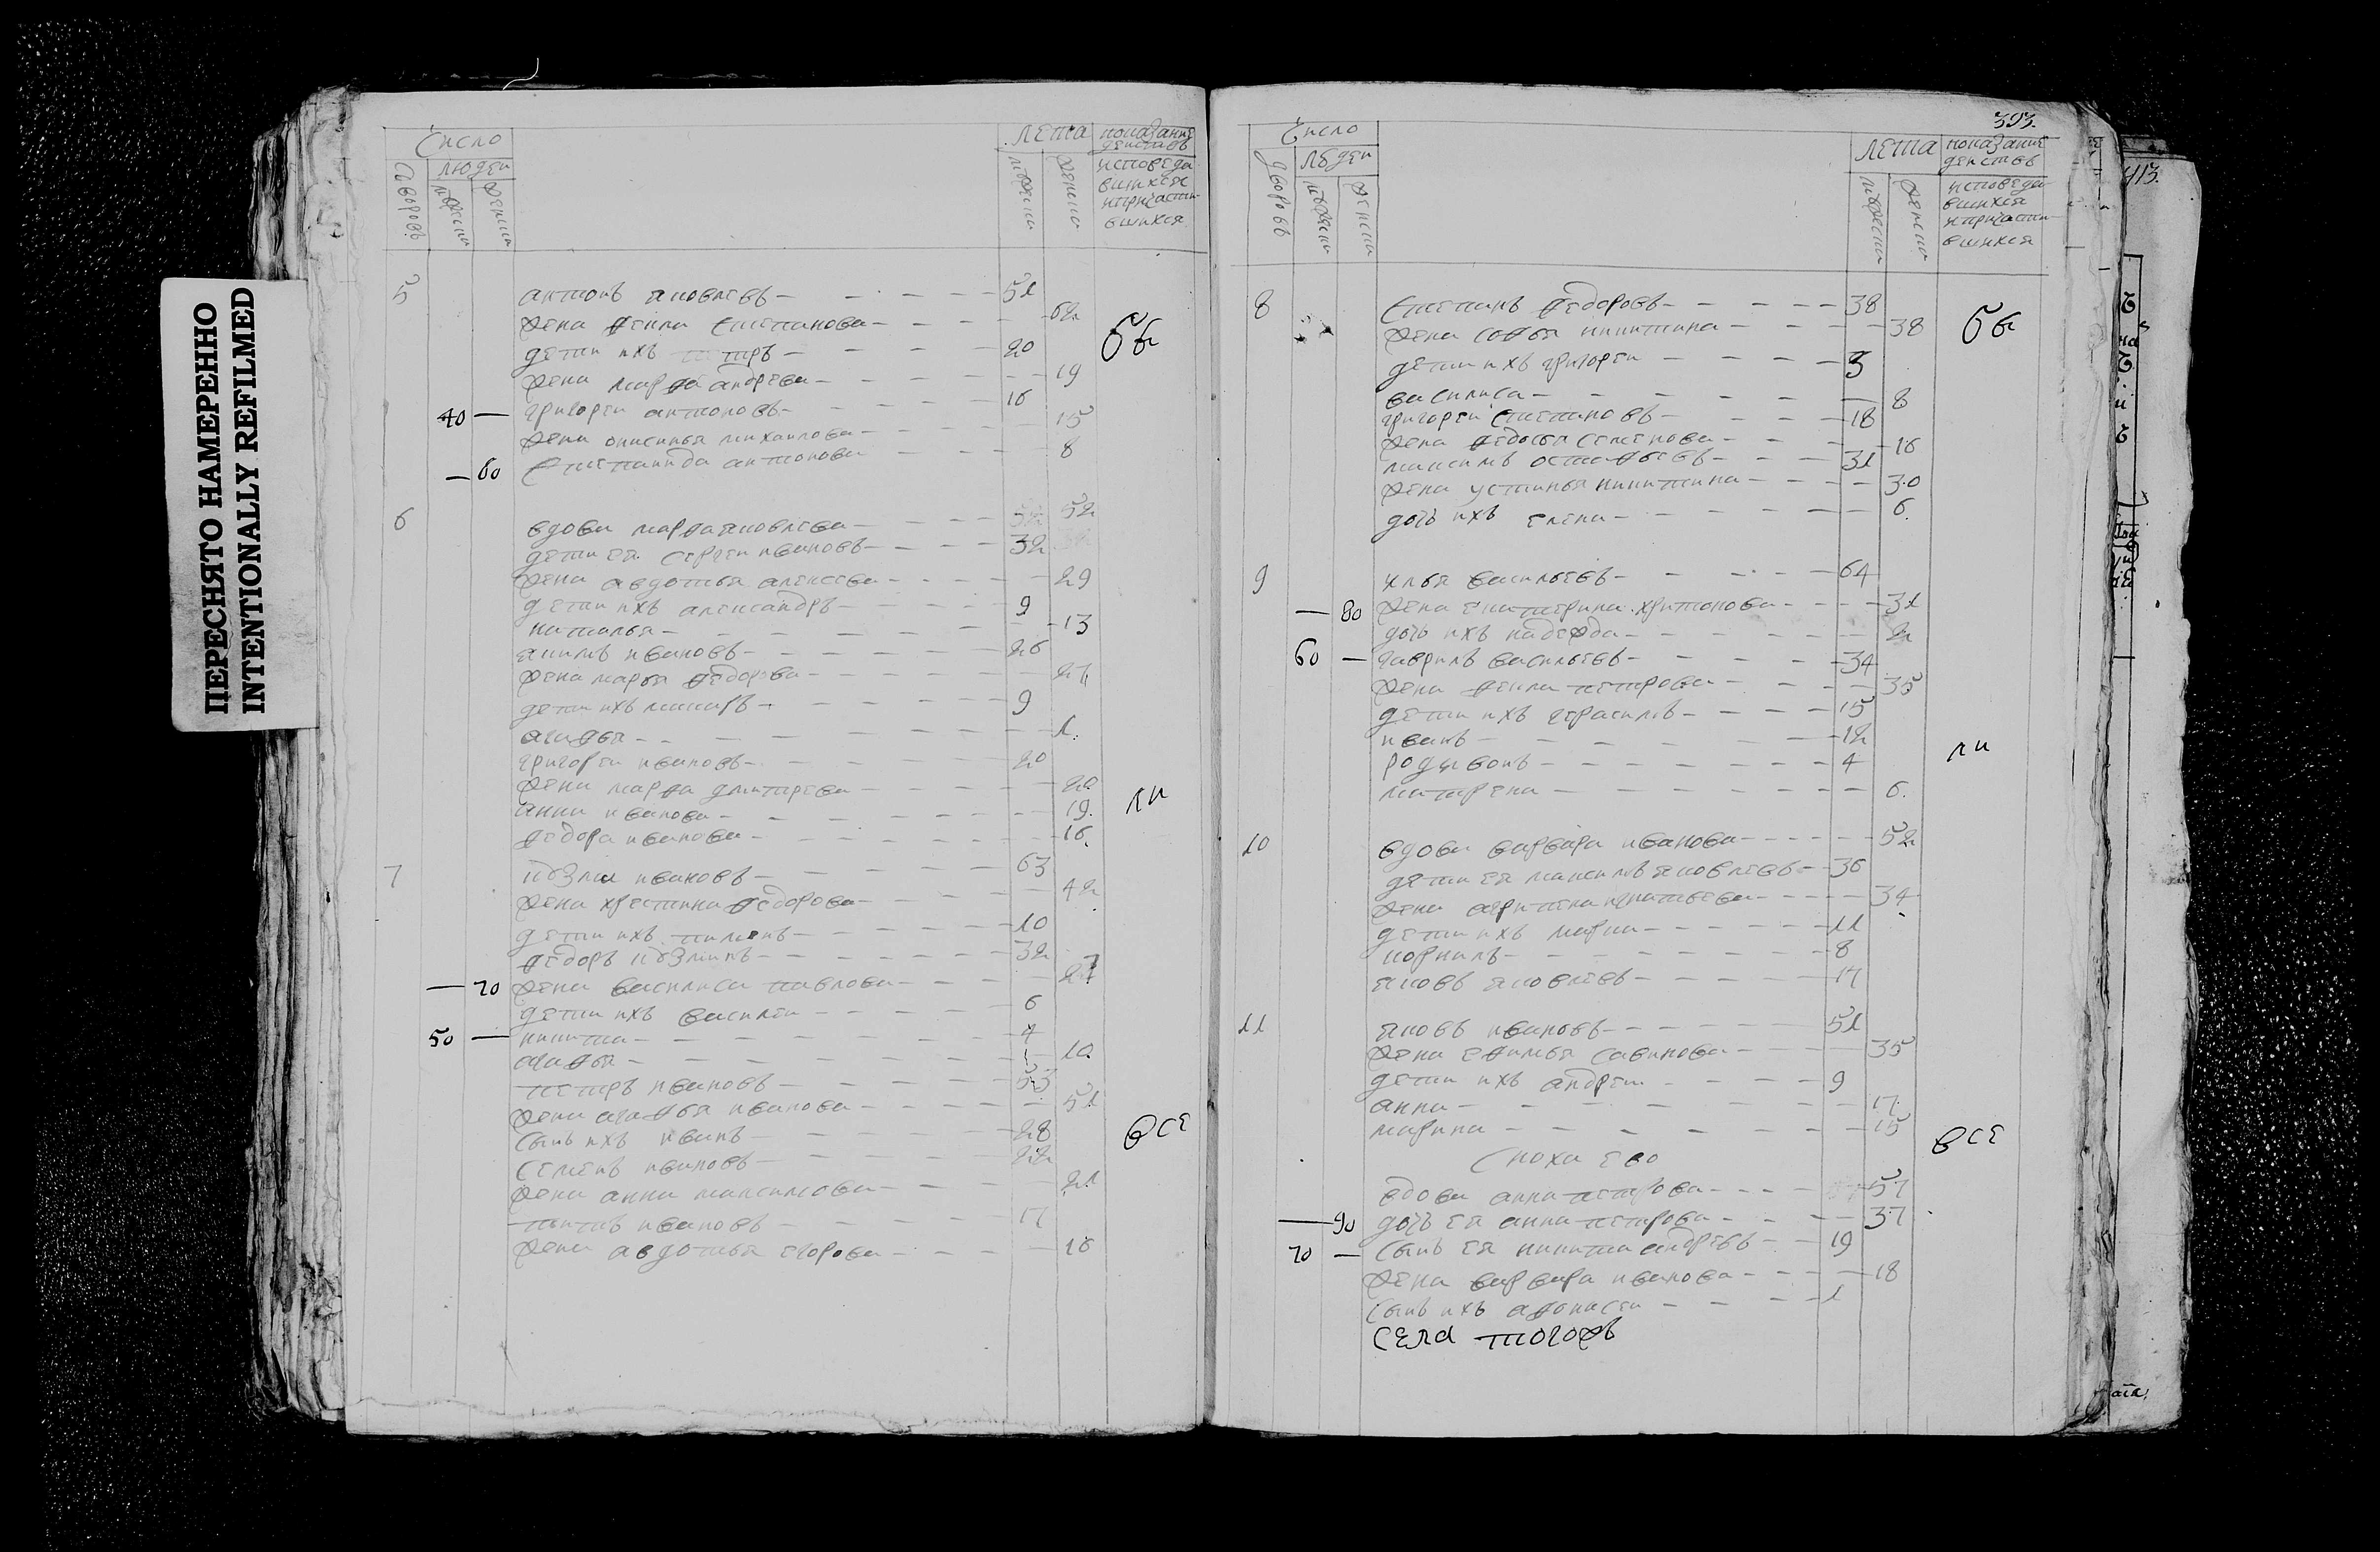 ПЕРЕСНЯТО НАМЕРЕННО
INTENTIONALLY REFILMED
Число
дворовъ
людеи
мужеска
женска
лета
мужеска
женска
показание
деиствъ
исповеда
вшихся
ипричасти
вшихся
5 антонъ яковлевъ — 51
жена фекла степанова — 62
дети ихъ петръ — 20
жена марфа андрева — 19
40 — григореи антоновъ — 16
жена онисинья михаилова — 15
— 60 степанида антонова — 8
обы
6 вдова марфа яковлева — 52
дети ея сергеи ивановъ — 32
жена авдотья алексева — 29
дети ихъ александръ — 9
наталья — 13
якимъ ивановъ — 26
жена марья федорова — 27
дети ихъ макаръ — 9
агафья — 1
григореи ивановъ — 20
жена марфа дмитрева — 20
анна иванова — 19
федора иванова — 16
ли
7 кузма ивановъ — 63
жена христина федорова — 42
дети ихъ пименъ — 10
федоръ кузминъ — 32
— 70 жена василиса павлова — 27
дети ихъ василеи — 6
50 — никита — 4
агафья — 10
петръ ивановъ — 53
жена агафья иванова — 51
сынъ ихъ иванъ — 28
семенъ ивановъ — 22
жена анна максимова — 21
титъ ивановъ — 17
жена авдотья егорова — 16
все
393.
Число
дворовъ
людеи
мужеска
женска
лета
мужеска
женска
показание
деиствъ
исповеда
вшихся
ипричасти
вшихся
8 степанъ федоровъ — 38
жена софья никитина — 38
дети ихъ григореи — 3
василиса — 8
григореи степановъ — 18
жена федосья семенова — 16
максимъ остафьевъ — 31
жена устинья никитина — 30
дочь ихъ елена — 6.
обы
9 илья васильевъ — 64
— 80 жена екатерина харитонова — 31
дочь ихъ надежда — 2
60 — гаврилъ васильевъ — 34
жена фекла петрова — 35
дети ихъ герасимъ — 15
иванъ — 12
родивонъ — 4
матрена — 6.
ли
10 вдова варвара иванова — 52
дети ея максимъ яковлевъ — 36
жена агрипена игнатьева — 34
дети ихъ марка — 11
корнилъ — 8
яковъ яковлевъ — 17
11 яковъ ивановъ — 51
жена ефимья савинова — 35
дети ихъ андреи — 9
анна — 17
марина — 15
сноха ево
вдова анна петрова — 57
— 90 дочь ея анна петрова — 37
70 — сынъ ея никита андревъ — 19
жена варвара иванова — 18
сынъ ихъ афонасеи — 1
все
села тогожъ
413.